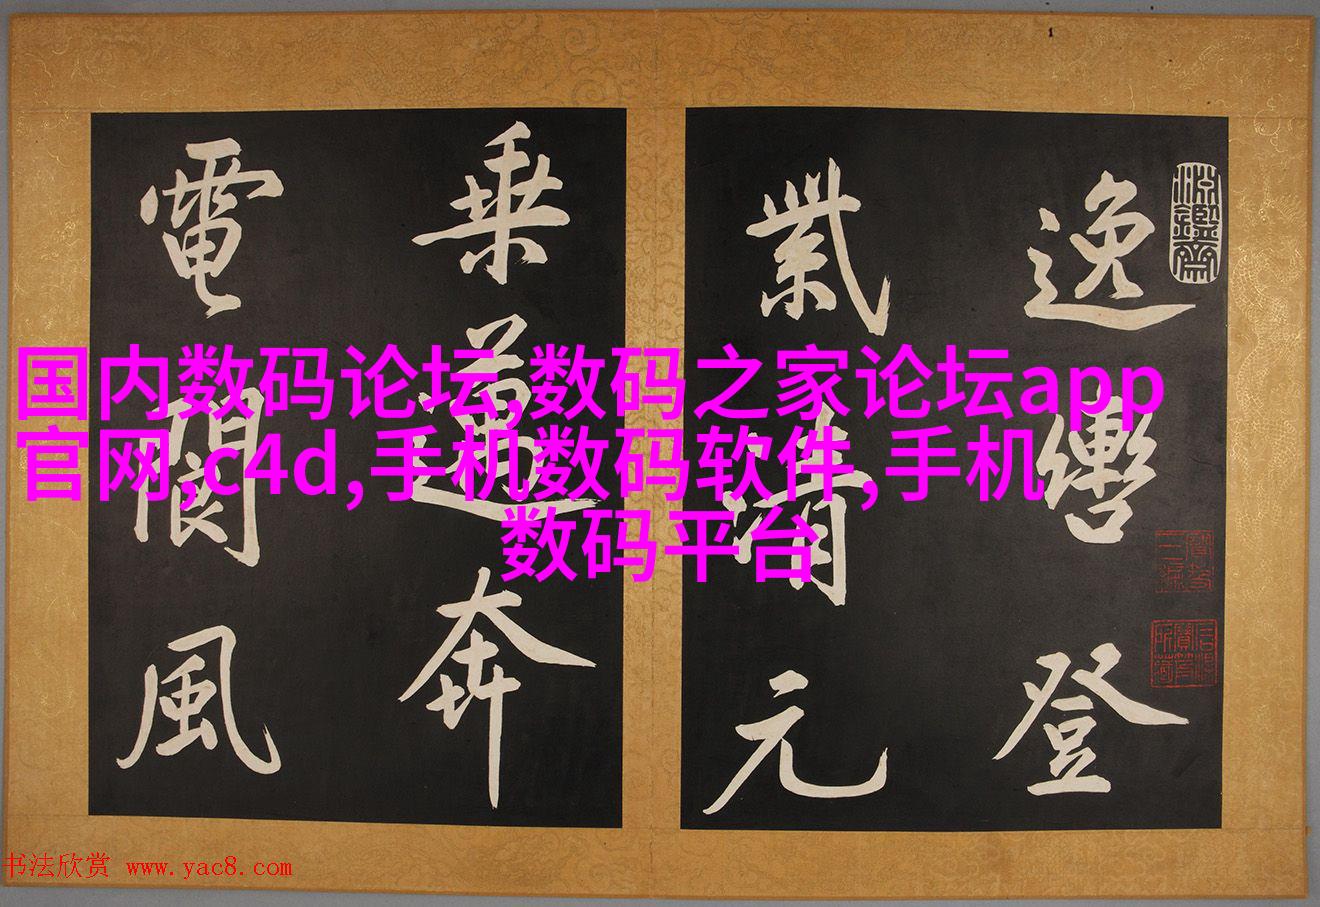 国内数码论坛,数码之家论坛app
官网,c4d,手机数码软件,手机
数码平台
逸轡登
紫清元
乘邁奔
電閬風
书法欣赏 www.yac8.com